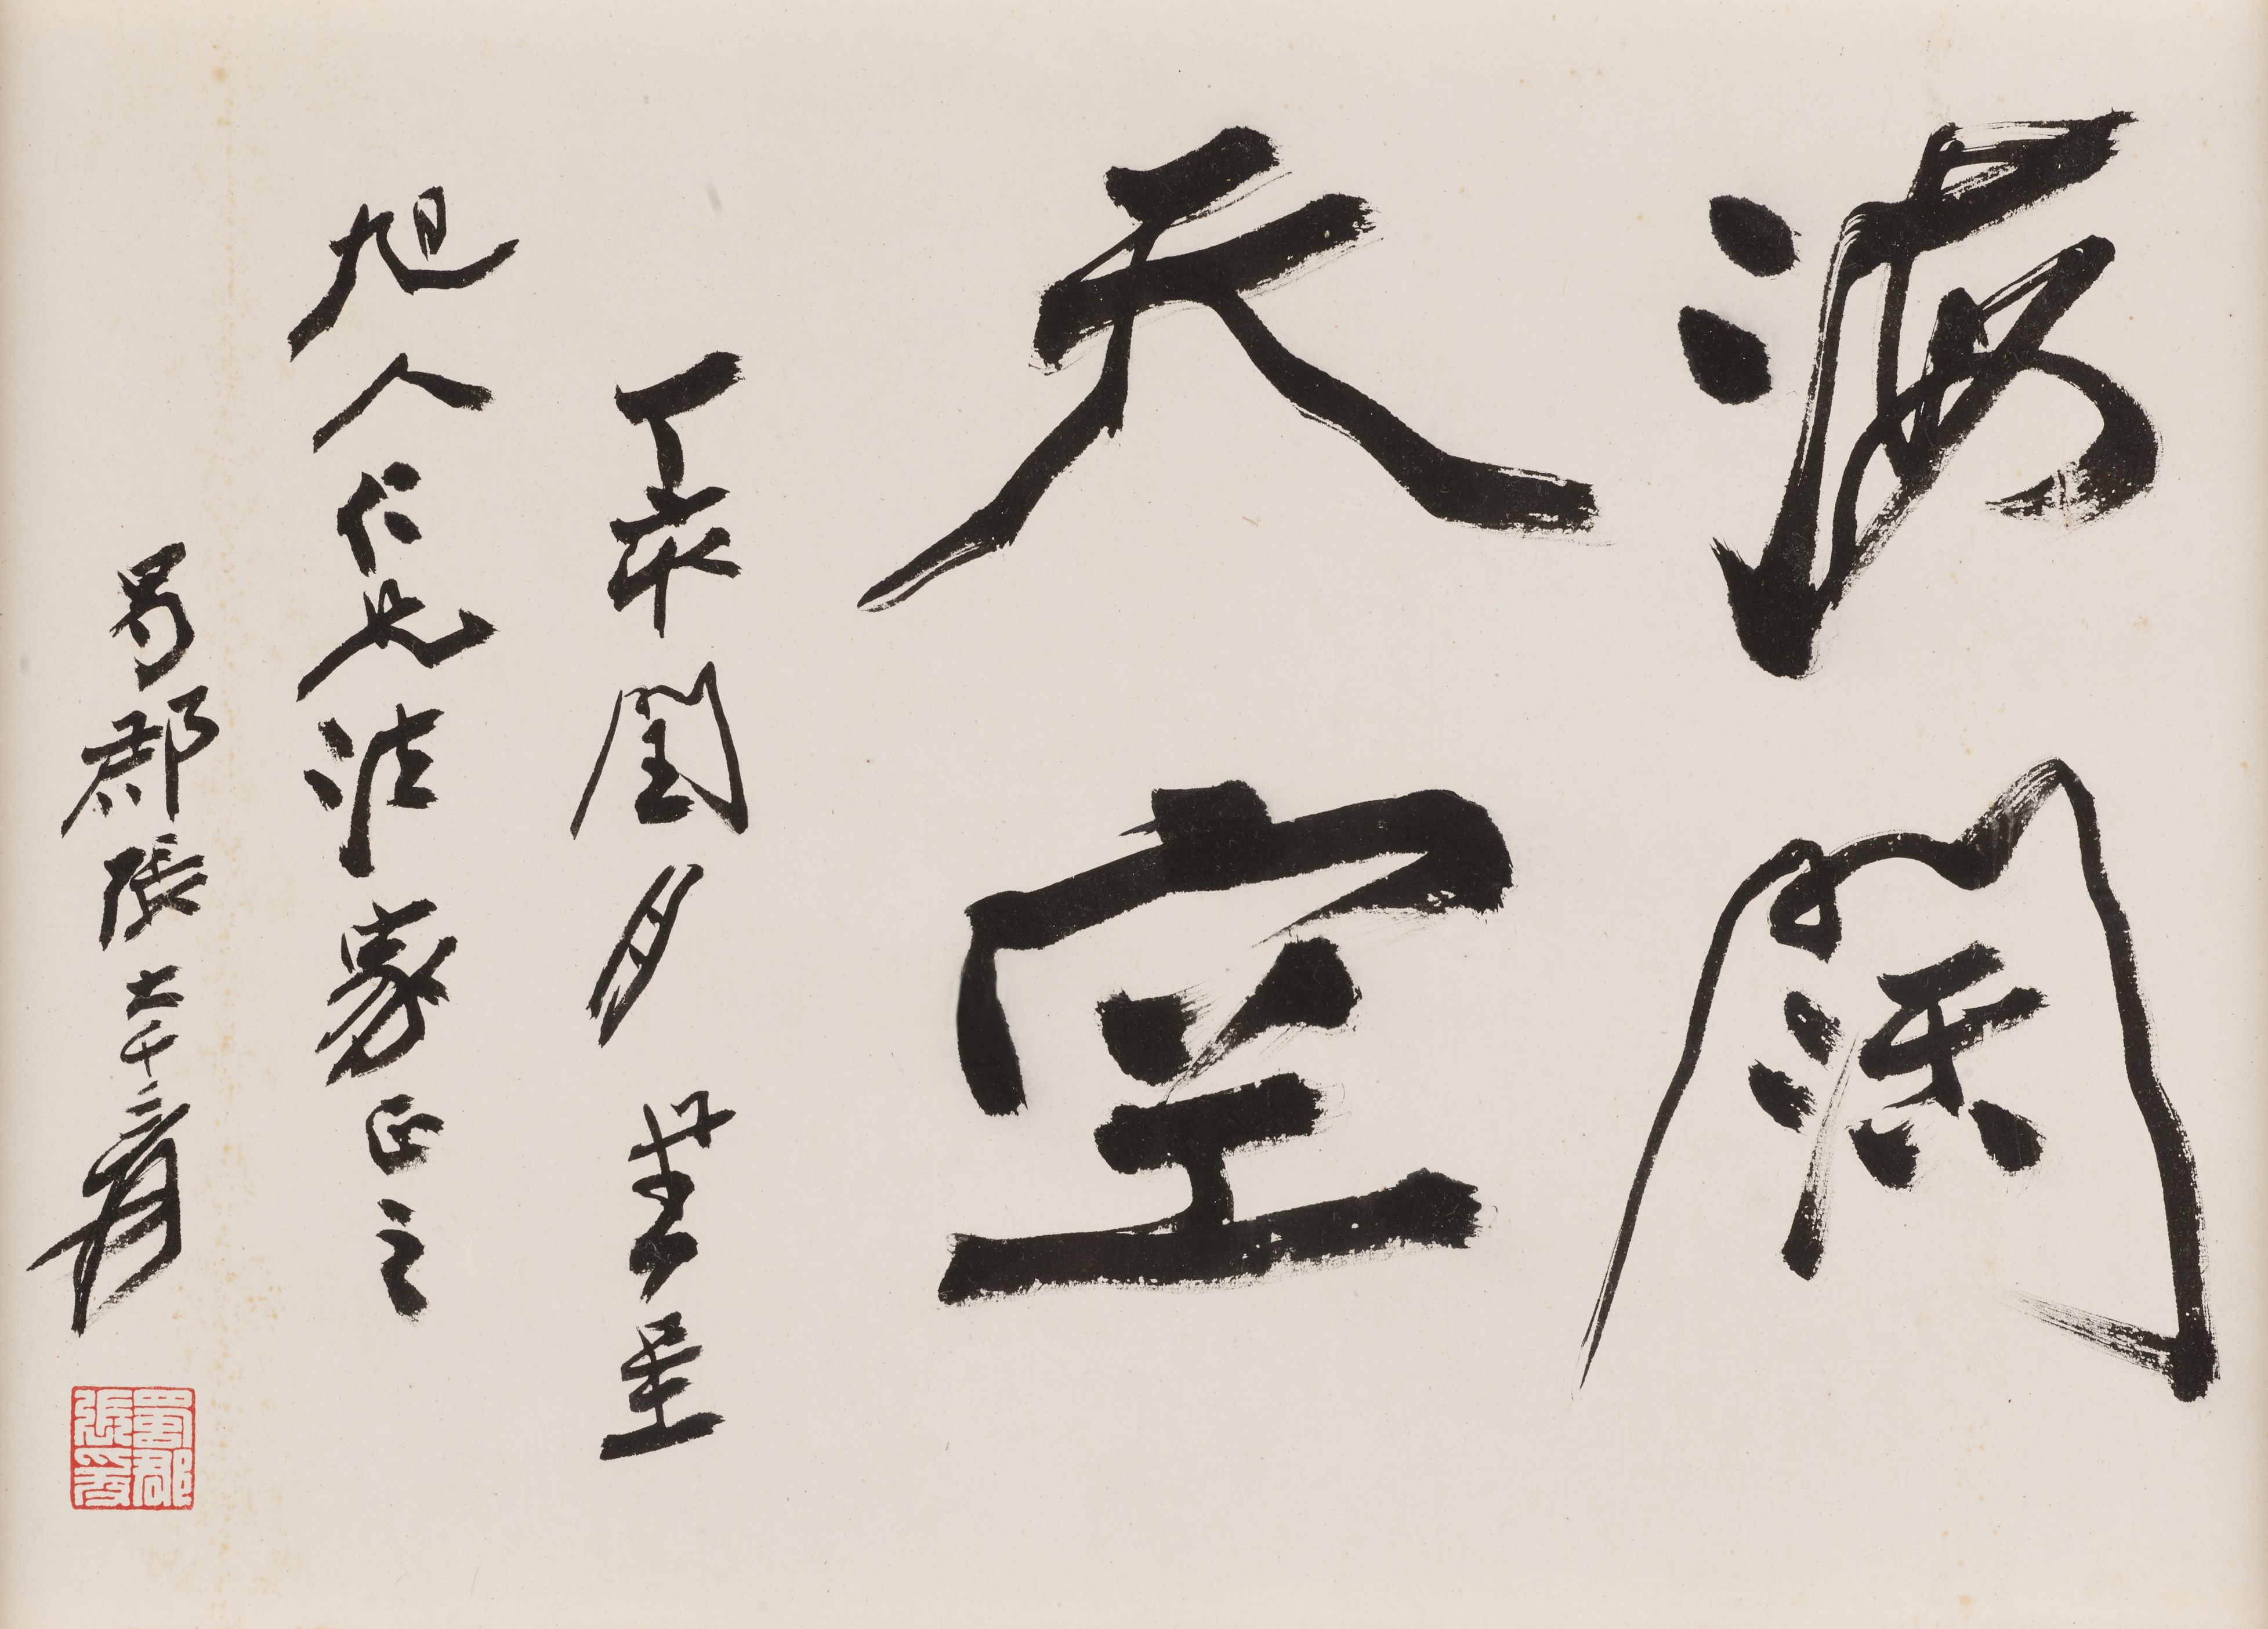 海闊
天空
丁 閏月書呈
旭人仁兄法家正之
蜀郡張大千爰
蜀郡
張爰